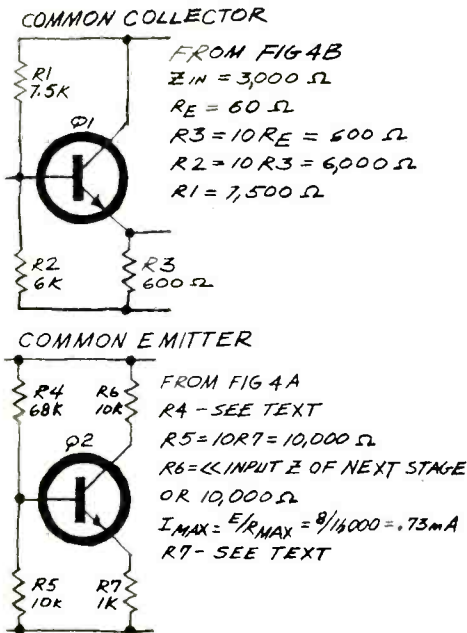 COMMON COLLECTOR
R1
7.5K
Q1
R2
6K
R3
600 Ω
FROM FIG 4B
ZIN = 3,000 Ω
RE = 60 Ω
R3 = 10 RE = 600 Ω
R2 = 10 R3 = 6,000 Ω
R1 = 7,500 Ω
COMMON EMITTER
R4
68K
R6
10K
Q2
R5
10K
R7
1K
FROM FIG 4A
R4 - SEE TEXT
R5 = 10R7 = 10,000 Ω
R6 = << INPUT Z OF NEXT STAGE
OR 10,000 Ω
IMAX = E/RMAX = 8/11,000 = .73mA
R7 - SEE TEXT